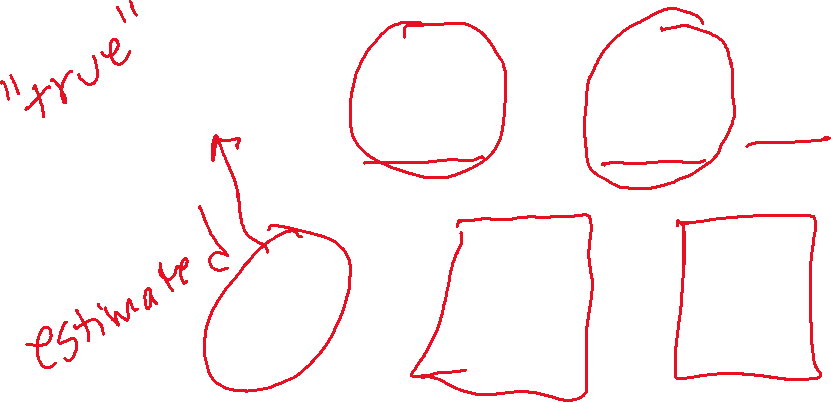 "true"
estimated